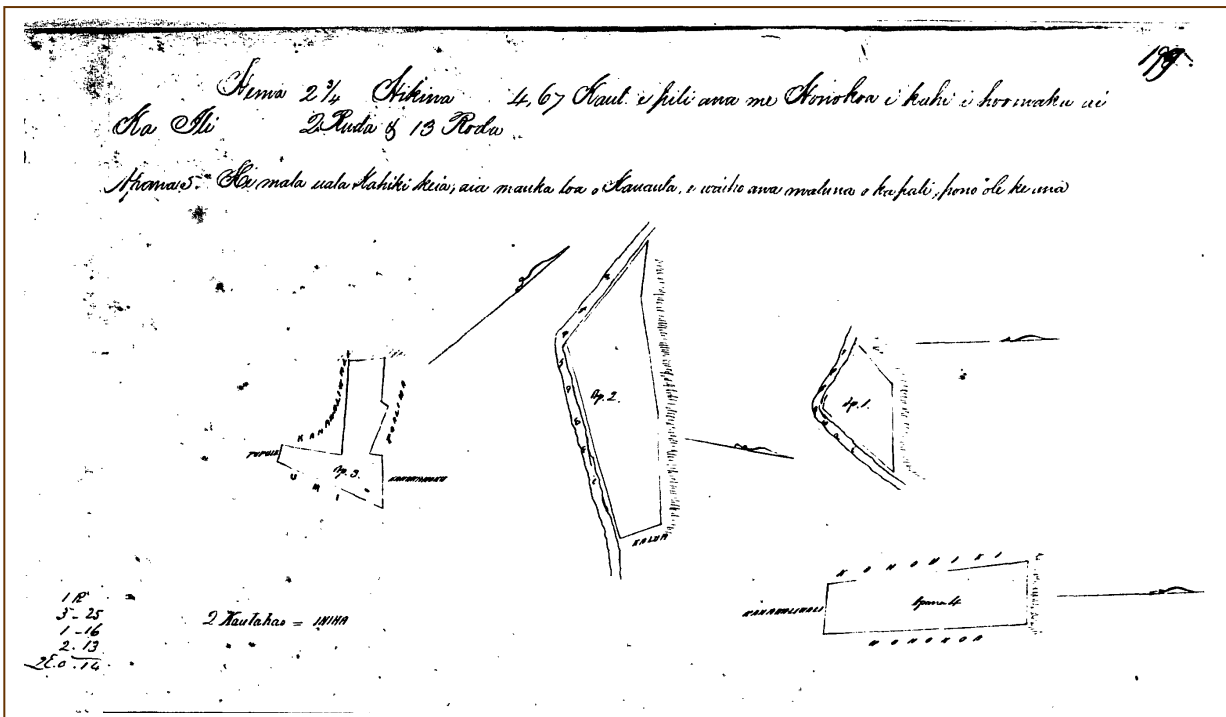 199.
Hema 2 3/4 Hikina 4,67 Kaul. e pili ana me Honokoa i kahi i hoomaku ai
Ka Ili 2 Ruda & 13 Roda
Apana 5. He mala uala Kahiki keia, aia mauka loa o Kauaula, e waiho ana maluna o ka pali, pono ole ke ana
Ap. 2.
Ap. 1.
PUPULE
Ap. 3
U M I
KALUA
KONOHIKI
Apana 4
HONOKOA
1 R
3 - 25
1 - 16
2. 13
2 Kaulahao = INIHA